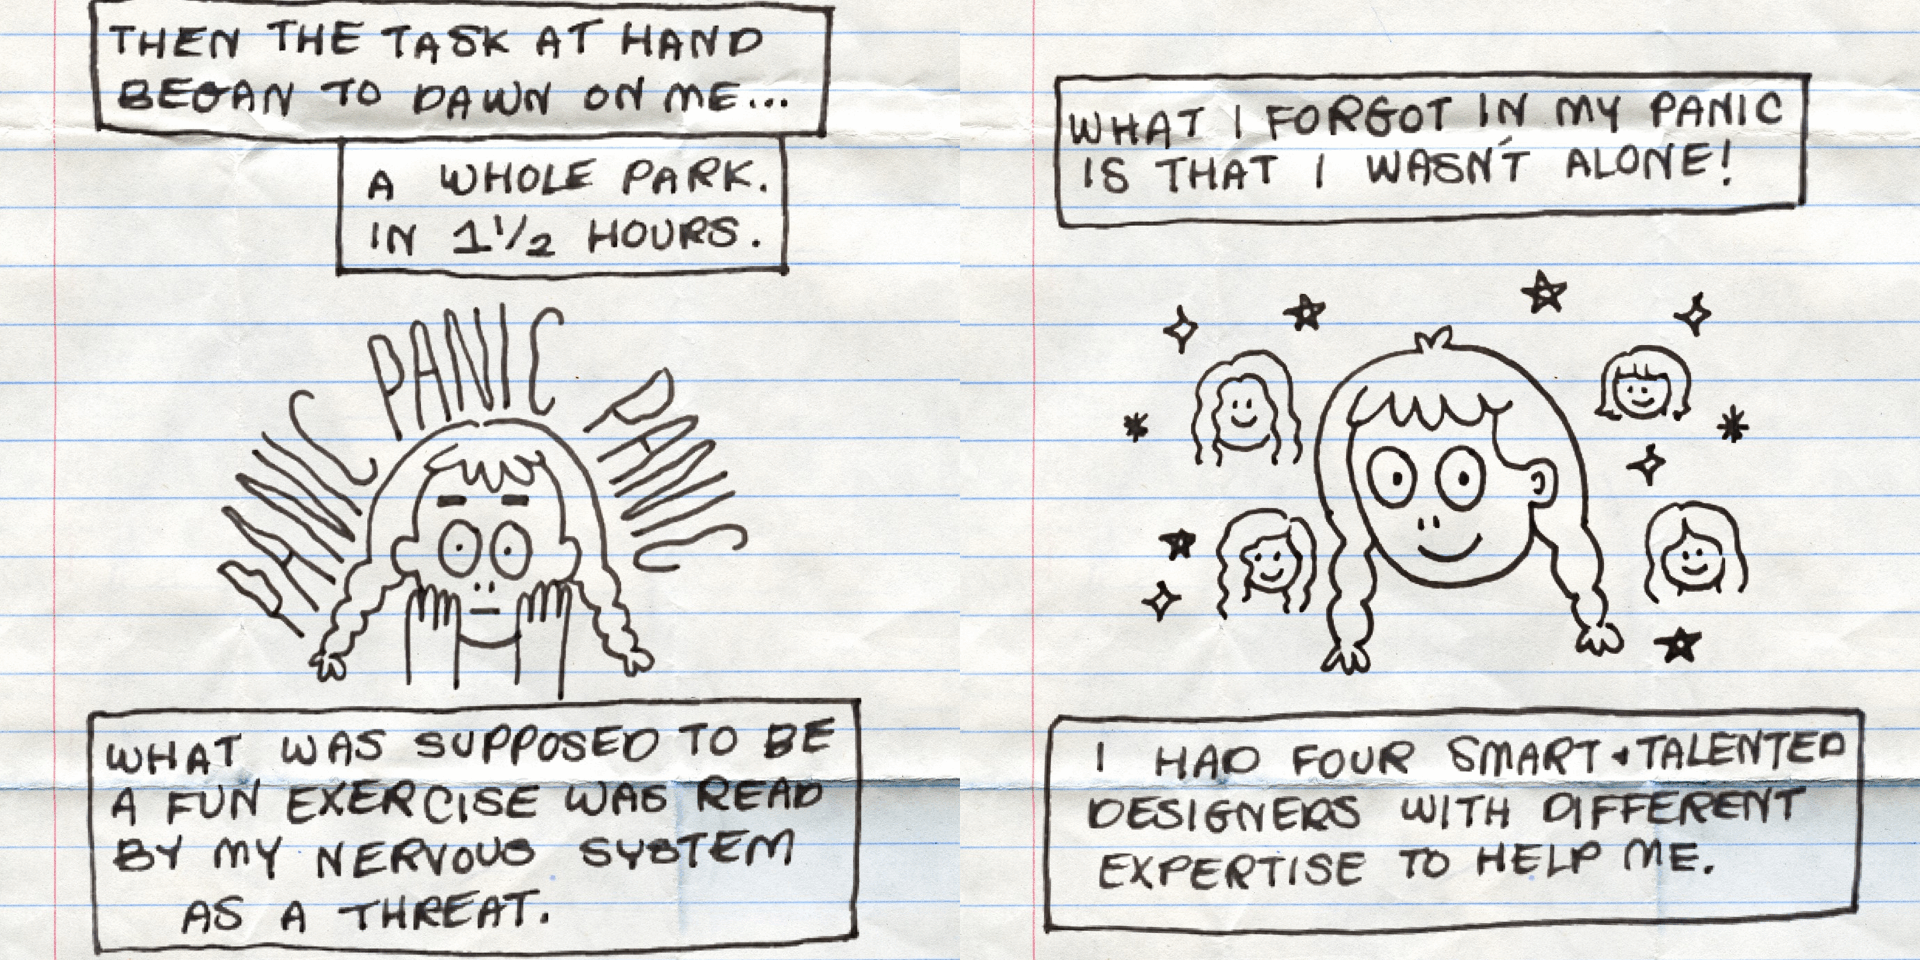 THEN THE TASK AT HAND
BEGAN TO DAWN ON ME...
A WHOLE PARK.
IN 1 1/2 HOURS.
PANIC PANIC PANIC
WHAT WAS SUPPOSED TO BE
A FUN EXERCISE WAS READ
BY MY NERVOUS SYSTEM
AS A THREAT.
WHAT I FORGOT IN MY PANIC
IS THAT I WASN'T ALONE!
I HAD FOUR SMART + TALENTED
DESIGNERS WITH DIFFERENT
EXPERTISE TO HELP ME.